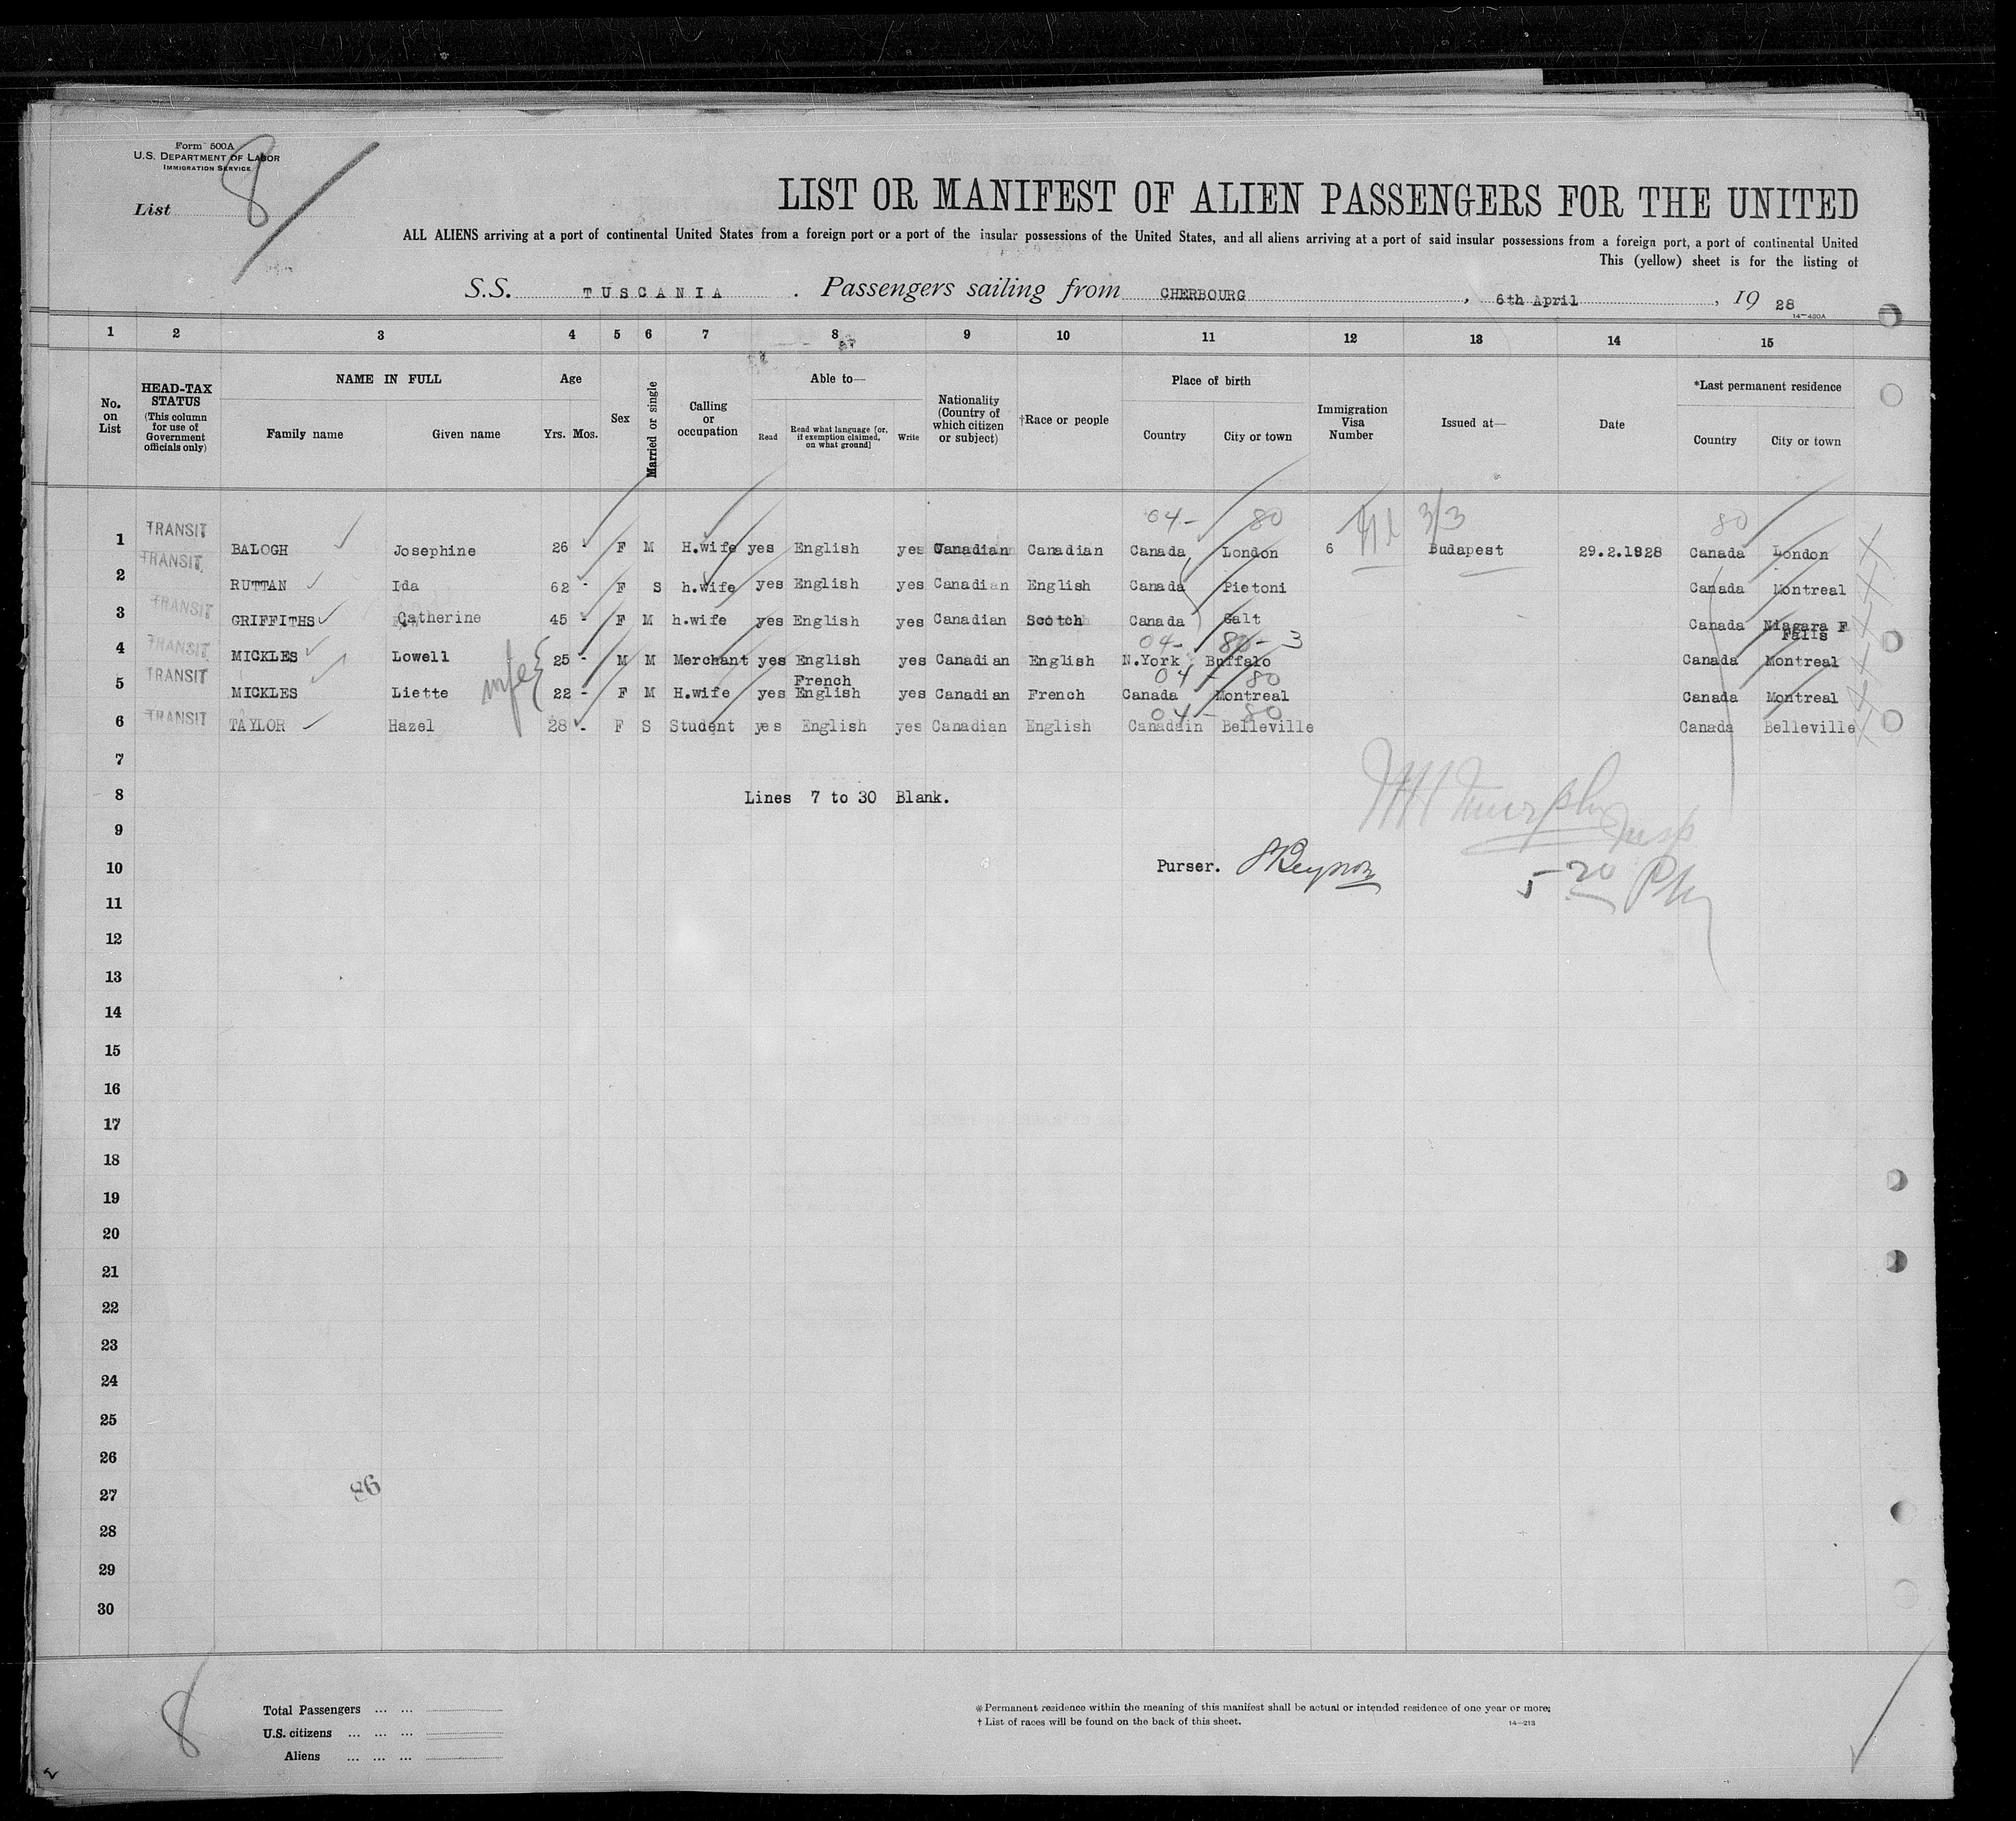 Form 500A
U.S. DEPARTMENT OF LABOR
IMMIGRATION SERVICE
List 8
LIST OR MANIFEST OF ALIEN PASSENGERS FOR THE UNITED
ALL ALIENS arriving at a port of continental United States from a foreign port or a port of the insular possessions of the United States, and all aliens arriving at a port of said insular possessions from a foreign port, a port of continental United
This (yellow) sheet is for the listing of
S.S. TUSCANIA . Passengers sailing from CHERBOURG , 6th April , 19 28
14-480A
1 2 3 4 5 6 7 8 9 10 11 12 13 14 15
No. on List
HEAD-TAX STATUS (This column for use of Government officials only)
NAME IN FULL
Family name Given name
Age
Yrs. Mos.
Sex
Married or single
Calling or occupation
Able to—
Read
Read what language [or, if exemption claimed, on what ground]
Write
Nationality (Country of which citizen or subject)
†Race or people
Place of birth
Country City or town
Immigration Visa Number
Issued at—
Date
*Last permanent residence
Country City or town
04- 80 3/3 80
1 TRANSIT BALOGH Josephine 26 - F M H.wife yes English yes Canadian Canadian Canada London 6 Budapest 29.2.1928 Canada London
2 TRANSIT RUTTAN Ida 62 - F S h.wife yes English yes Canadian English Canada Pietoni Canada Montreal
3 TRANSIT GRIFFITHS Catherine 45 - F M h.wife yes English yes Canadian Scotch Canada Galt Canada Niagara F Falls
04- 80- 3
4 TRANSIT MICKLES Lowell 25 - M M Merchant yes English yes Canadian English N.York Buffalo Canada Montreal
wife
04 - 80
5 TRANSIT MICKLES Liette 22 - F M H.wife yes French English yes Canadian French Canada Montreal Canada Montreal
04- 80
6 TRANSIT TAYLOR Hazel 28 - F S Student yes English yes Canadian English Canadain Belleville Canada Belleville
7
8 Lines 7 to 30 Blank.
Murphy Insp
9
10 Purser.
5-20 PM
11
12
13
14
15
16
17
18
19
20
21
22
23
24
25
26
27
86
28
29
30
8
Total Passengers ... ...
U.S. citizens ... ... ...
Aliens ... ... ...
* Permanent residence within the meaning of this manifest shall be actual or intended residence of one year or more.
† List of races will be found on the back of this sheet.
14-213